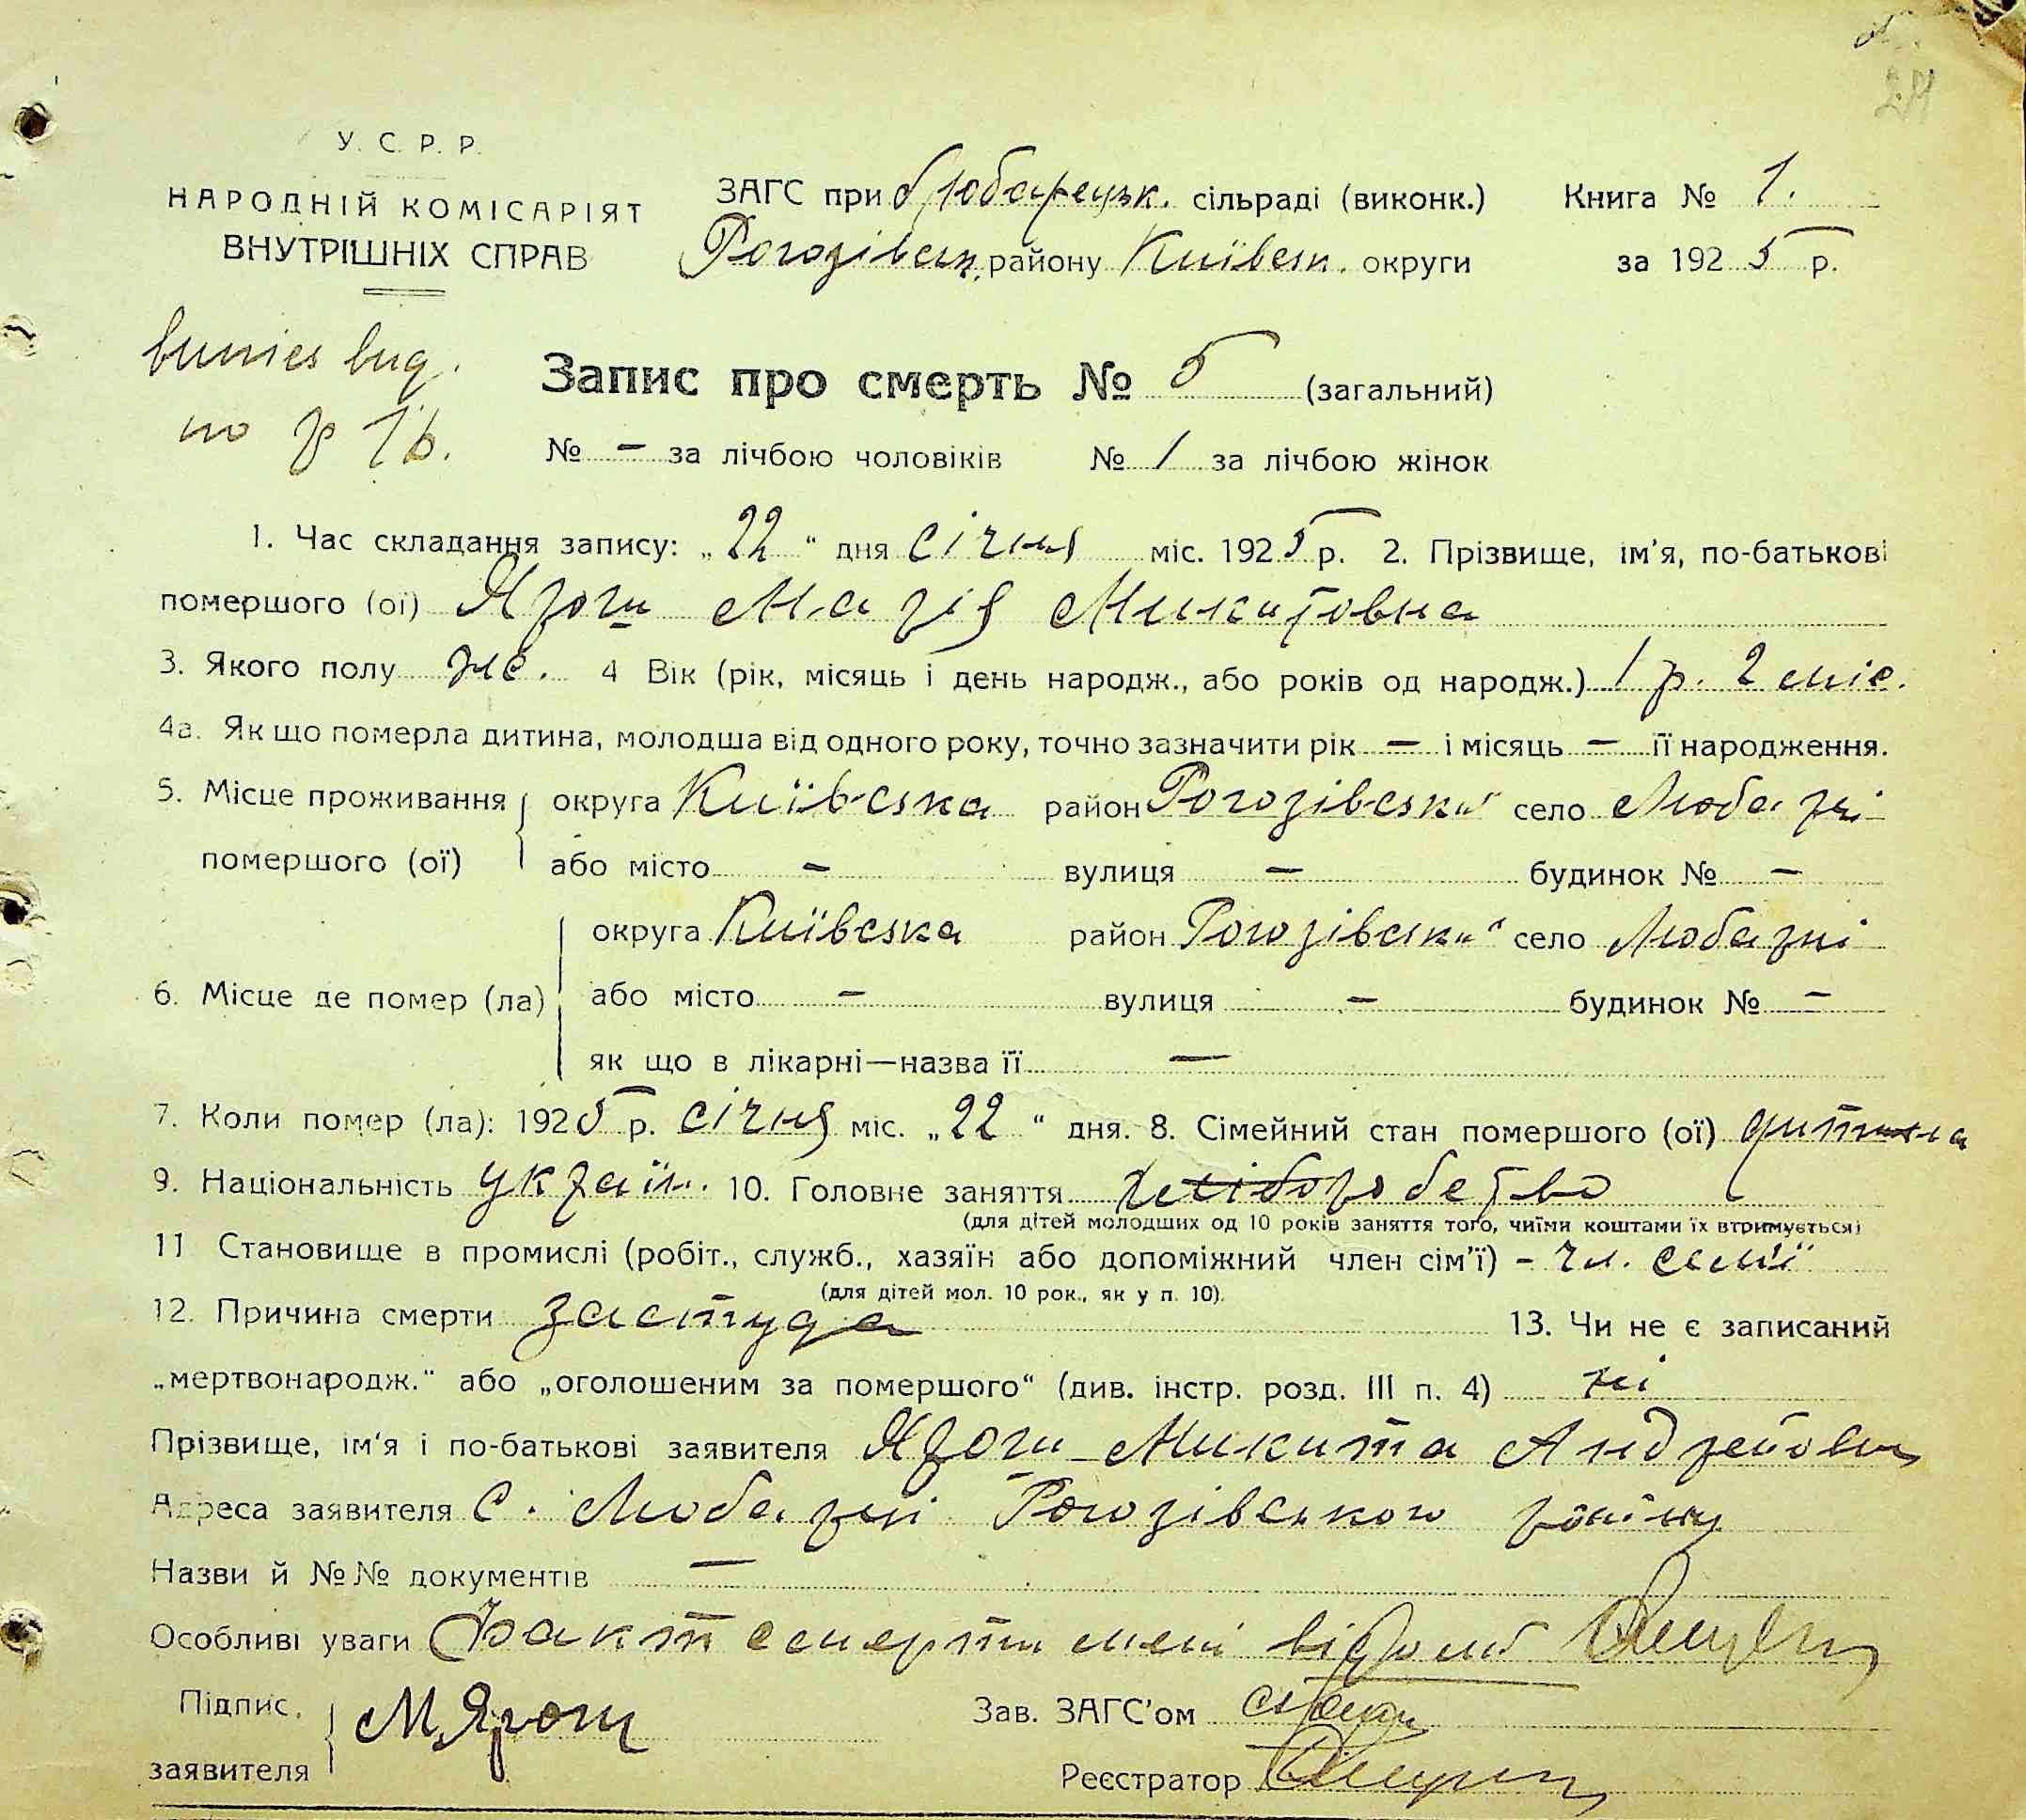 24
У. С. Р. Р.
НАРОДНІЙ КОМІСАРІЯТ
ВНУТРІШНІХ СПРАВ
ЗАГС при Любарецьк. сільраді (виконк.) Книга № 1.
Рогозівськ. району Київськ. округи за 1925 р.
випис вид.
по р
Запис про смерть № 5 (загальний)
№ – за лічбою чоловіків № 1 за лічбою жінок
1. Час складання запису: „22“ дня січня міс. 1925 р. 2. Прізвище, ім'я, по-батькові
помершого (ої) Ярош Марія Микитовна
3. Якого полу жс. 4 Вік (рік, місяць і день народж., або років од народж.) 1 р. 2 міс.
4а. Як що померла дитина, молодша від одного року, точно зазначити рік – і місяць – її народження.
5. Місце проживання округа Київська район Рогозівськи село Любарці
помершого (ої) або місто – вулиця – будинок № –
округа Київська район Рогозівськи село Любарці
6. Місце де помер (ла) або місто – вулиця – будинок № –
як що в лікарні—назва її –
7. Коли помер (ла): 1925 р. січня міс. „22“ дня. 8. Сімейний стан помершого (ої) дитина
9. Національність україн. 10. Головне заняття хліборобство
(для дітей молодших од 10 років заняття того, чиїми коштами їх втримується)
11 Становище в промислі (робіт., служб., хазяїн або допоміжний член сім'ї) – чл. семії
(для дітей мол. 10 рок., як у п. 10).
12. Причина смерти застуда 13. Чи не є записаний
„мертвонародж.“ або „оголошеним за помершого“ (див. інстр. розд. III п. 4) ні
Прізвище, ім'я і по-батькові заявителя Ярош Микита Андреїович
Адреса заявителя С. Любарці Рогозівського району
Назви й №№ документів –
Особливі уваги Факт смерти мені відомий
Підпис. М. Ярош Зав. ЗАГС'ом
заявителя Реєстратор